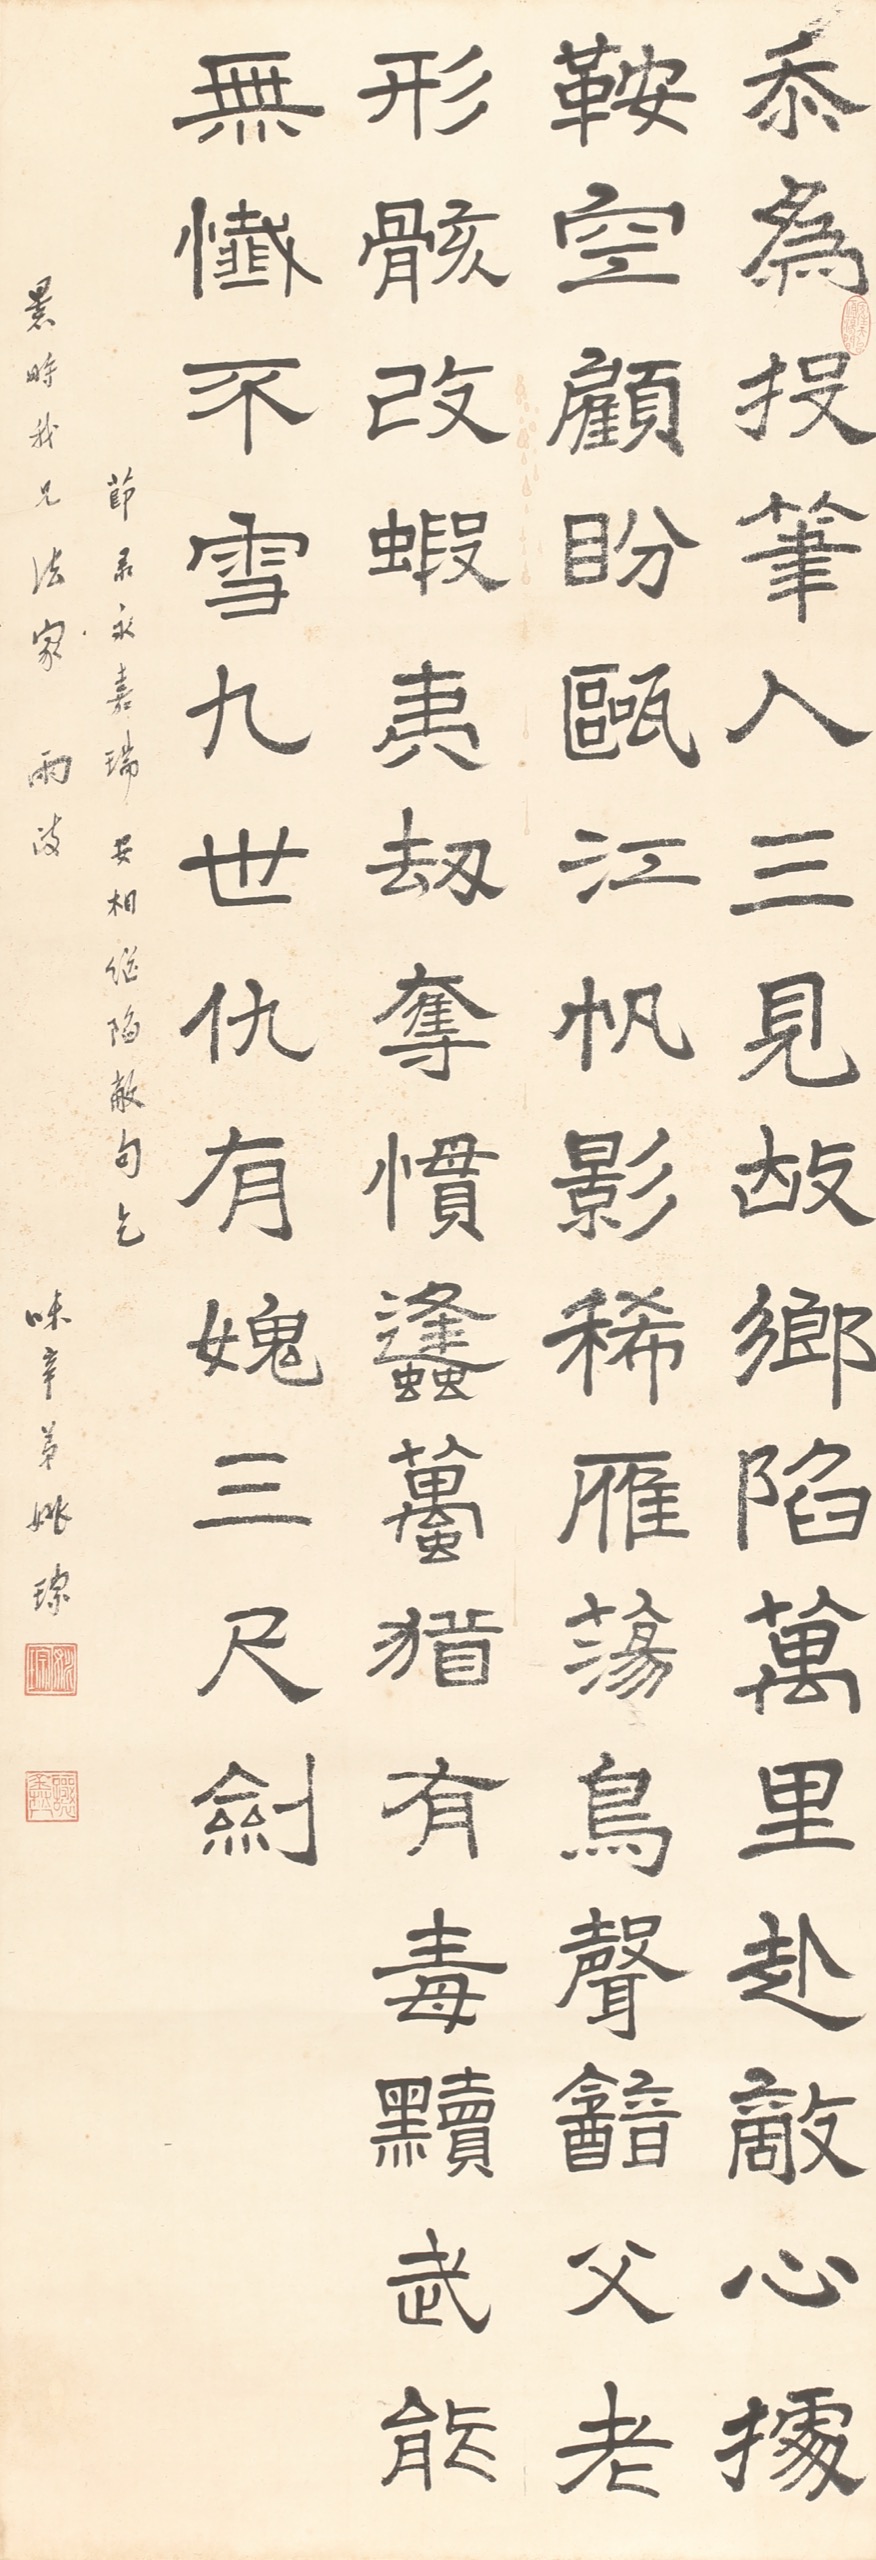 忝為投筆人三見故鄉陷萬里赴敵心據
鞍空顧盼甌江帆影稀雁蕩鳥聲韽父老
形骸改蝦夷劫奪慣蠭蠆猶有毒黷武能
無懺不雪九世仇有媿三尺劍
節录永嘉瑞安相继陷敵句乞
景時我兄法家雨政
味辛弟姚琮